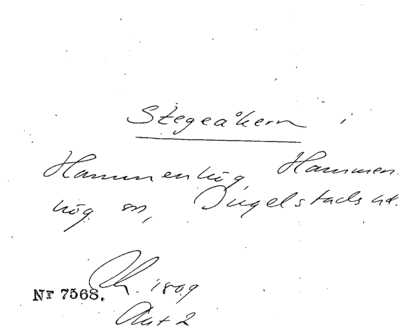 Stegeåkern i
Hammenhög Hammen-
hög sn, Ingelstads hd.
Nr 7568.
1809
Akt 2